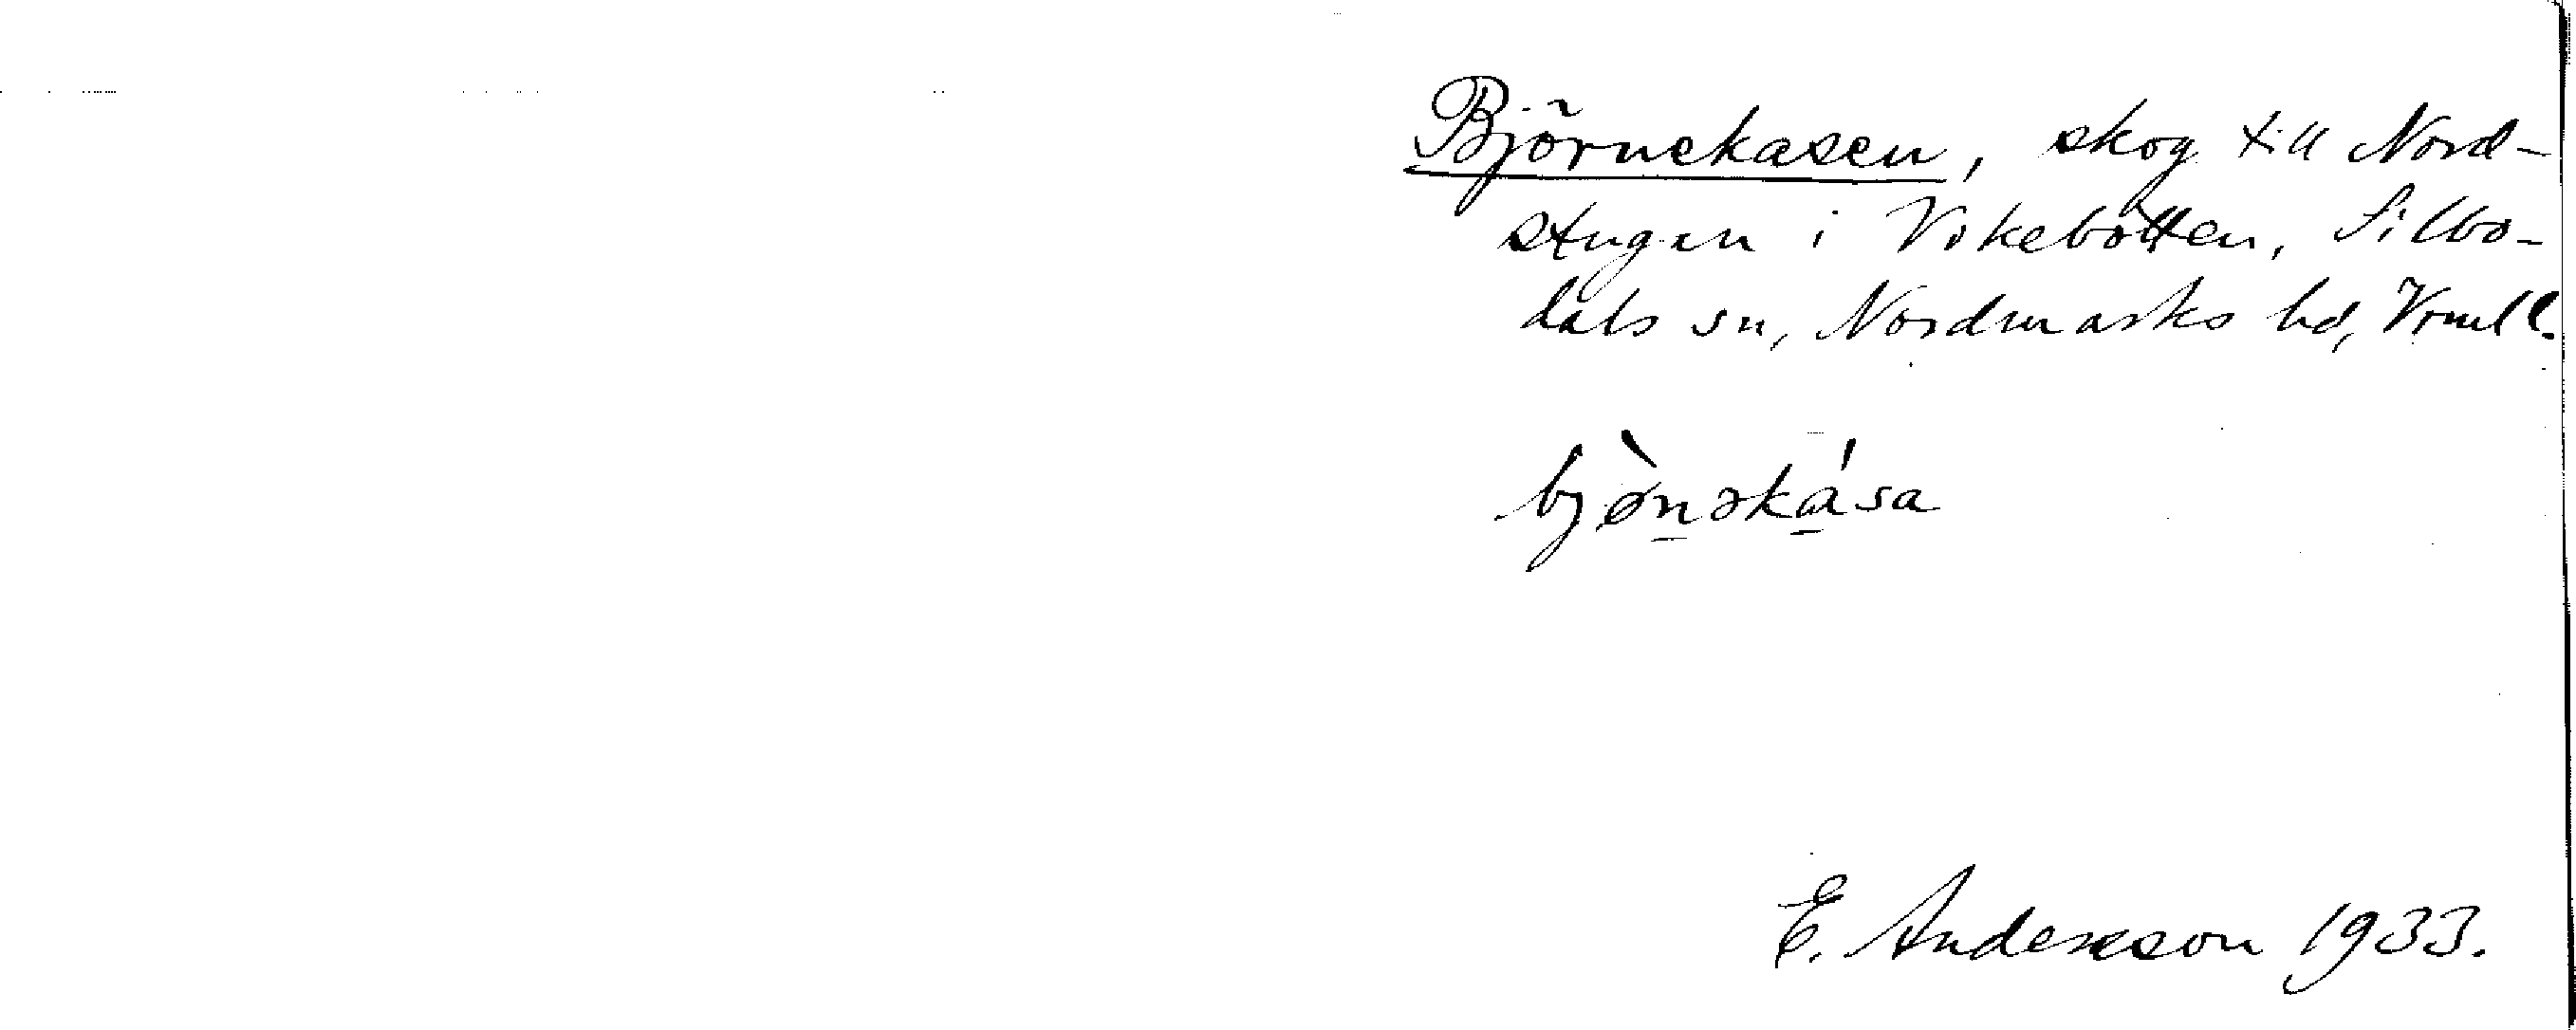 Björnekasen, skog till Nord-
stugan i Vikebotten, Silbo-
dals sn, Nordmarks hd, Vrml l.
bjø̀nəká̱sa
E. Andersson 1933.